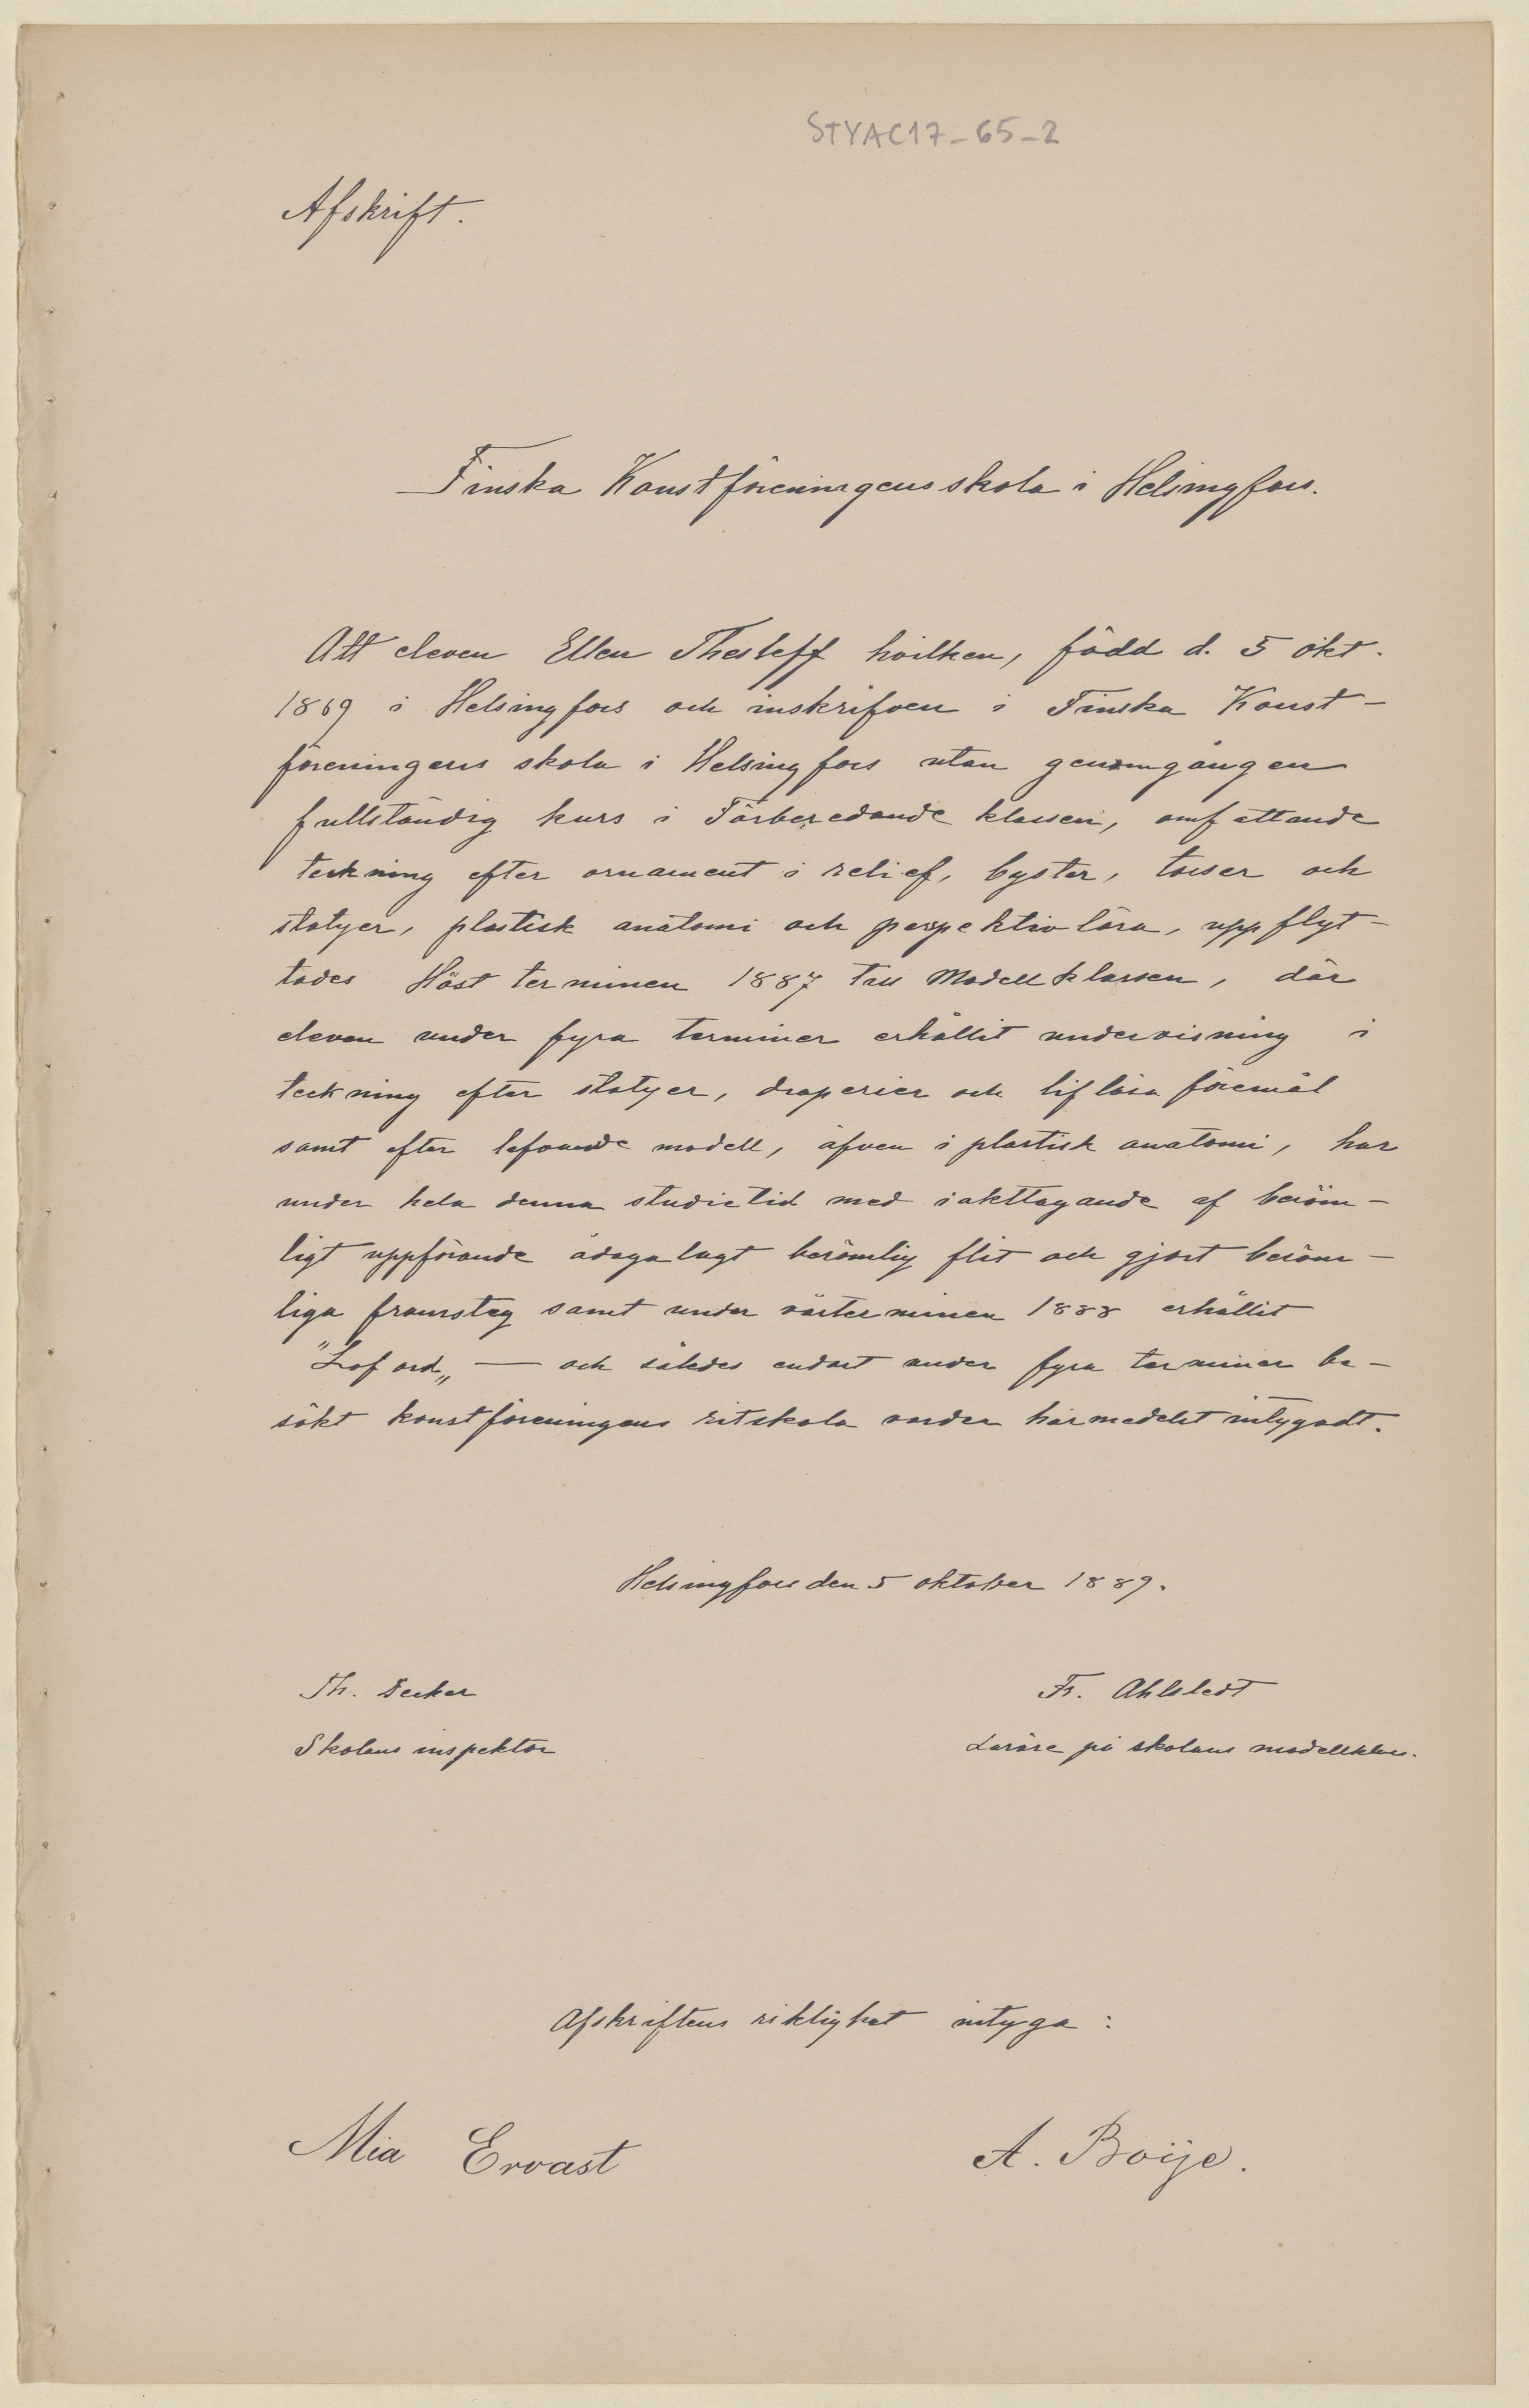 STYAC17-65-2
Afskrift.
Finska Konstföreningens skola i Helsingfors.
Att eleven Ellen Thesleff hvilken, född d. 5 okt.
1869 i Helsingfors och inskrifven i Finska Konst-
föreningens skola i Helsingfors utan genomgången
fullständig kurs i Förberedande klassen, omfattande
teckning efter ornament i relief, byster, torser och
statyer, plastisk anatomi och perspektivlära, uppflyt-
tades Höst terminen 1887 till Modellklassen, där
eleven under fyra terminer erhållit undervisning i
teckning efter statyer, draperier och liflösa föremål
samt efter lefvande modell, äfven i plastisk anatomi, har
under hela denna studietid med iakttagande af beröm-
ligt uppförande ådagalagt berömlig flit och gjort beröm-
liga framsteg samt under vårterminen 1888 erhållit
"Lof ord„ — och således endast under fyra terminer be-
sökt konstföreningens ritskola varder härmedelst intygadt.
Helsingfors den 5 oktober 1889.
Th. Decker
Fr. Ahlstedt
Skolans inspektor
Lärare på skolans modellklass.
Afskriftens riktighet intyga:
Mia Ervast
A. Boije.